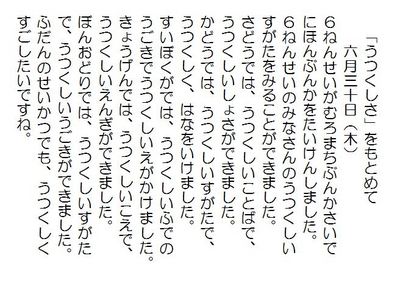 「うつくしさ」をもとめて
六月三十日（木）
６ねんせいがむろまちぶんかさいで
にほんぶんかをたいけんしました。
６ねんせいのみなさんのうつくしい
すがたをみることができました。
さとうでは、うつくしいことばで、
うつくしいしょさができました。
かどうでは、うつくしいすがたで、
うつくしく、はなをいけました。
すいぼくがでは、うつくしいふでの
うごきでうつくしいえがかけました。
きょうげんでは、うつくしいこえで、
うつくしいえんぎができました。
ぼんおどりでは、うつくしいすがた
で、うつくしいうごきができました。
ふだんのせいかつでも、うつくしく
すごしたいですね。